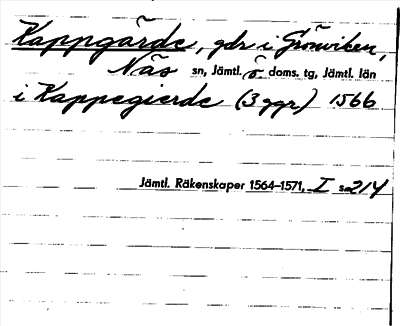 Kappgärde, gdr i Grönviken,
Näs sn, Jämtl. ö. doms. tg, Jämtl. län
i Kappegierde (3 ggr) 1566
Jämtl. Räkenskaper 1564–1571, I s. 214